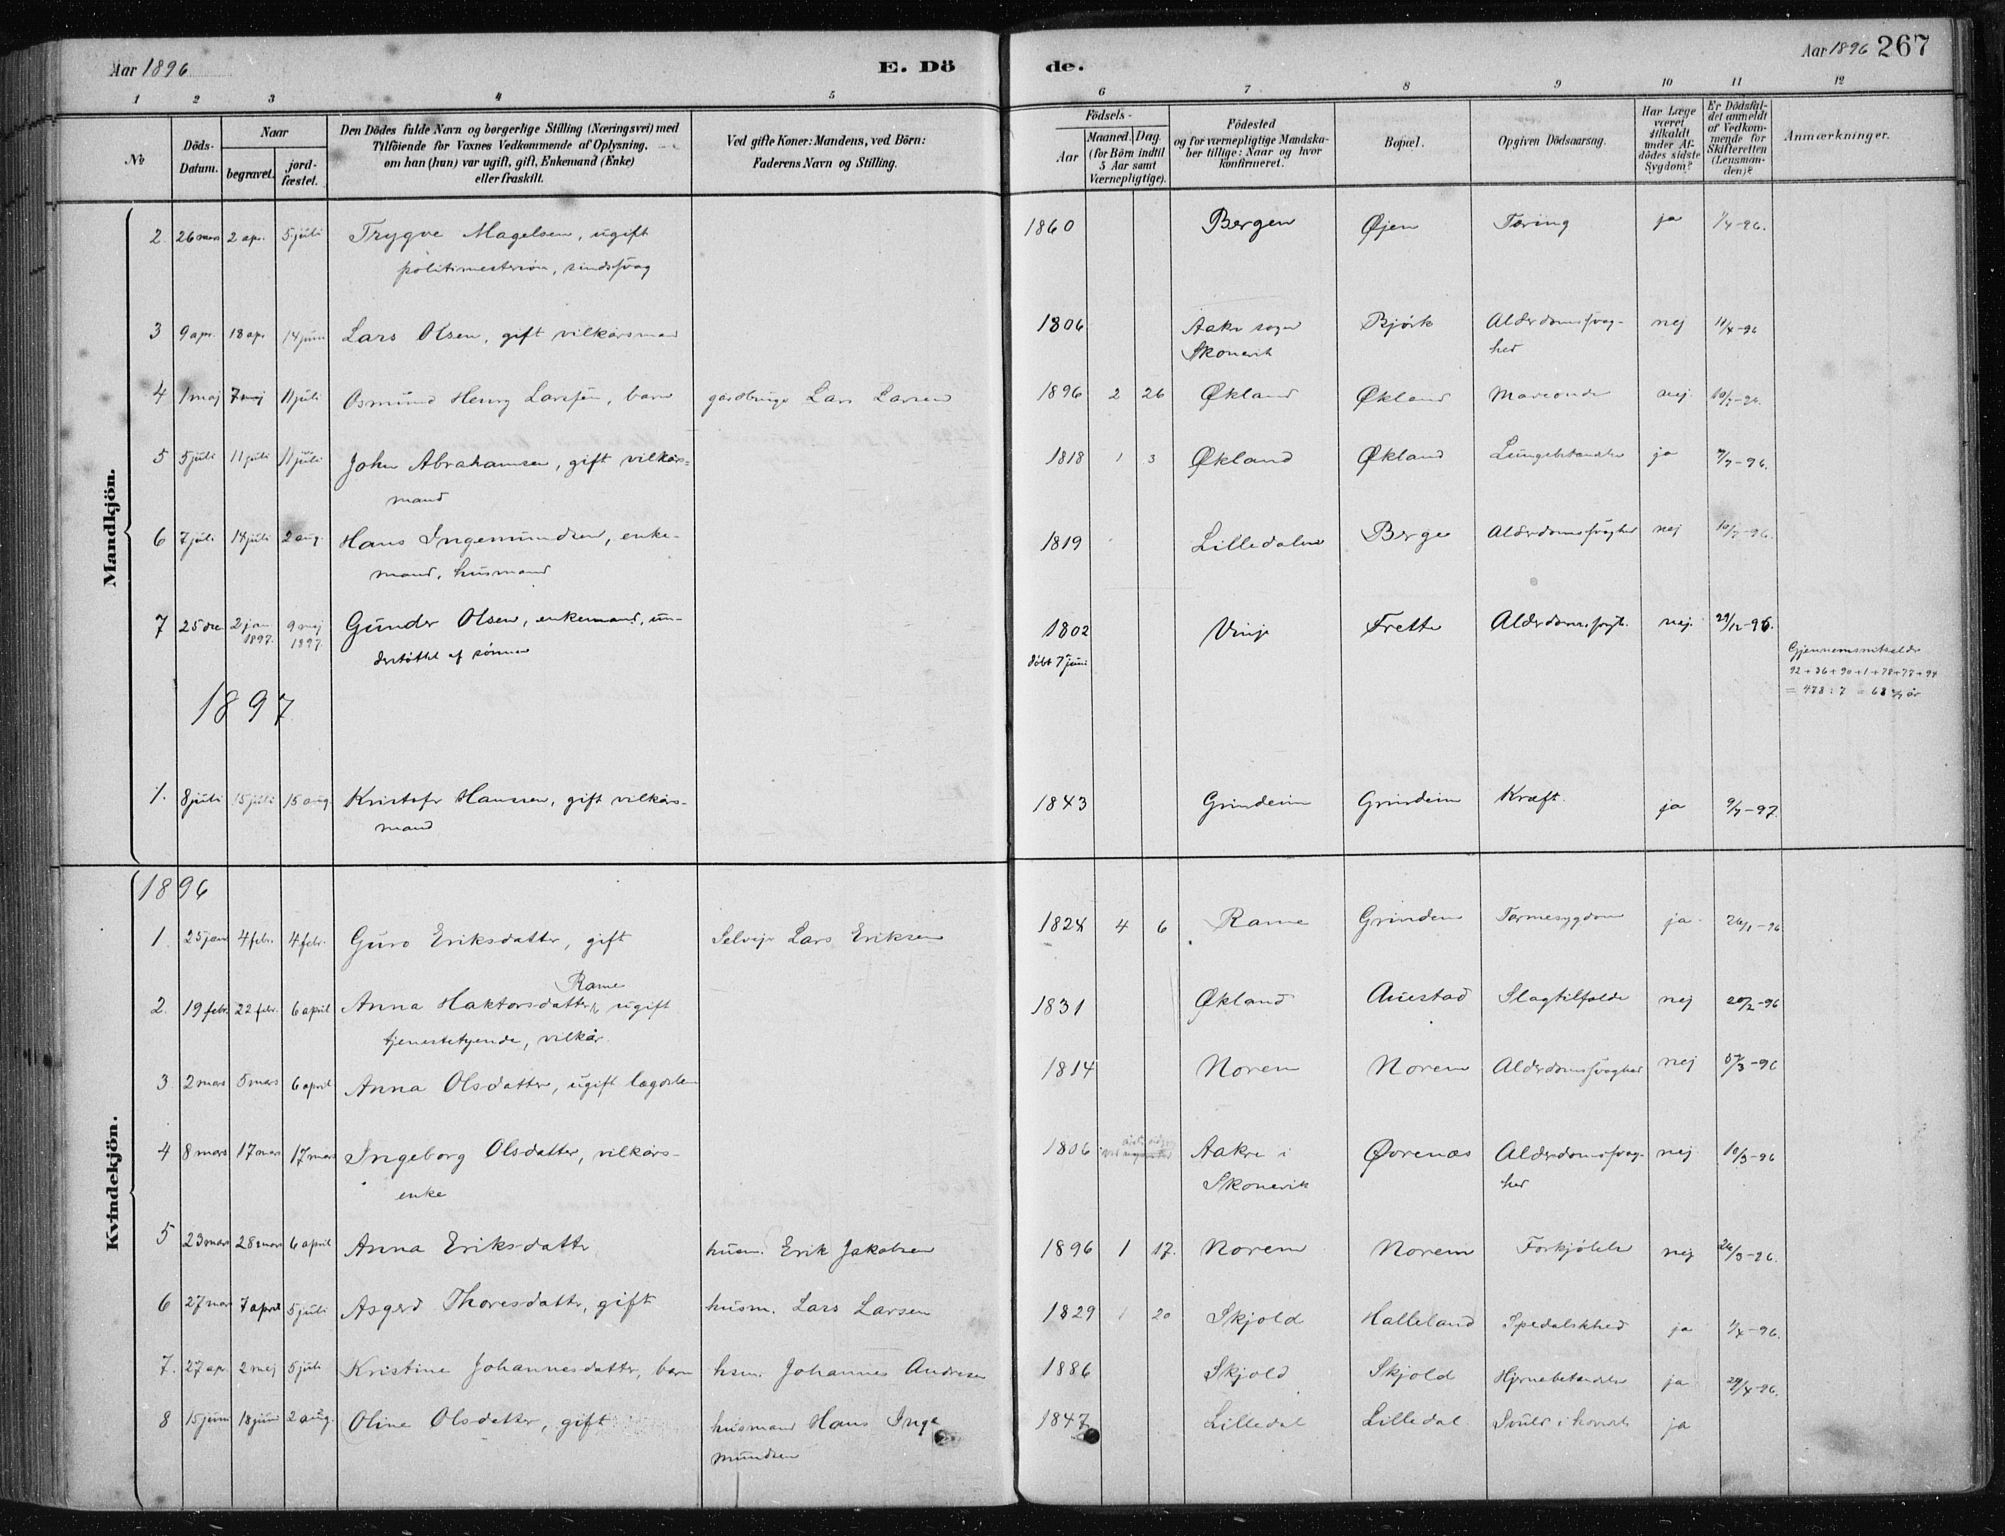 Aar 1896
E. Dö
de.
Aar 1896 267
1 2 3 4 5 6 7 8 9 10 11 12
No
Döds-Datum.
Naar
begravet.
jord-fæstet.
Den Dödes fulde Navn og borgerlige Stilling (Næringsvei) med
Tilföiende for Voxnes Vedkommende af Oplysning,
om han (hun) var ugift, gift, Enkemand (Enke)
eller fraskilt.
Ved gifte Koner: Mandens, ved Börn:
Faderens Navn og Stilling.
Födsels-
Aar
Maaned. Dag.
(for Börn indtil
5 Aar samt
Værnepligtige).
Födested
og for værnepligtige Mandska-
ber tillige: Naar og hvor
konfirmeret.
Bopæl.
Opgiven Dödsaarsag.
Har Læge
været
tilkaldt
under Af-
dödes sidste
Sygdom?
Er Dödsfal-
det anmeldt
af Vedkom-
mende for
Skifteretten
(Lensman-
den)?
Anmærkninger.
Mandkjön.
2. 26 mars 2 apr. 5 juli Trygve Magelsen, ugift 1860 Bergen Øjen Tæring ja 1/4-96.
politimestersøn, sindssvag
3 9 apr. 18 apr. 14 juni Lars Olsen, gift vilkårsmand 1806 Aakre sogn Bjørk Alderdomssvag- nej 11/4-96
Skonevik hed
4 1 maj 7 maj 11 juli Osmund Henry Larssen, barn gardbruger Lars Larsen 1896 2 26 Økland Økland nej
5 5 juli 11 juli 11 juli John Abrahamsen, gift vilkårs- 1818 1 3 Økland Økland Lungebetændelse ja 7/7-96.
mand
6 7 juli 14 juli 2 aug. Hans Ingemundsen, enke- 1819 Lilledalen Berge Alderdomssvaghed nej 10/7-96.
mand, husmand
7 25 dec 2 jan 1897. 9 maj 1897. Gunder Olsen, enkemand, un- 1802 Vinje Frette Alderdomssvagh. nej 29/12-96.
derstøttet af sønnen døbt 7 juni
Gjennemsnitsalder
92+36+90+1+78+77+94
= 478 : 7 = 68 2/7 år
1897
1. 8 juli 15 juli 15 aug. Kristofer Hanssen, gift vilkårs- 1843 Grindeim Grindeim Kræft. ja 9/7-97.
mand
Kvindekjön.
1896
1. 25 jan 4 febr. 4 febr. Guro Eriksdatter, gift Selvejer Lars Eriksen 1824 4 6 Rame Grindem Tarmesygdom ja 26/1-96
Rame
2. 19 febr. 22 febr. 6 april Anna Haktorsdatter, ugift 1831 Økland Auestad Slagtilfælde nej 20/2-96
tjenestetyende, vilkår.
3 2 mars 5 mars 6 april Anna Olsdatter, ugift lægdslem 1814 Norem Norem Alderdomssvaghed nej 5/3-96
4 8 mars 17 mars 17 mars Ingeborg Olsdatter, vilkårs- 1806 Aakre i Øvrenæs Alderdomssvag- nej 10/3-96
enke Skonevik hed
5 23 mars 28 mars 6 april Anna Eriksdatter husm. Erik Jakobsen 1896 1 17. Norem Norem Forkjølelse nej 26/3-96.
6 27 mars 7 april 5 juli Asgerd Thoresdatter, gift husm. Lars Larsen 1829 1 20 Skjold Halleland Spedalskhed ja 1/4-96.
7. 27 apr. 2 mej 5 juli Kristine Johannesdatter, barn hsm. Johannes Andresen 1886 Skjold Skjold Hjernebetændelse ja 29/4-96.
8 15 juni 18 juni 2 aug. Oline Olsdatter, gift husmand Hans Inge 1847 Lilledal Lilledal Svulst i ja
mundsen